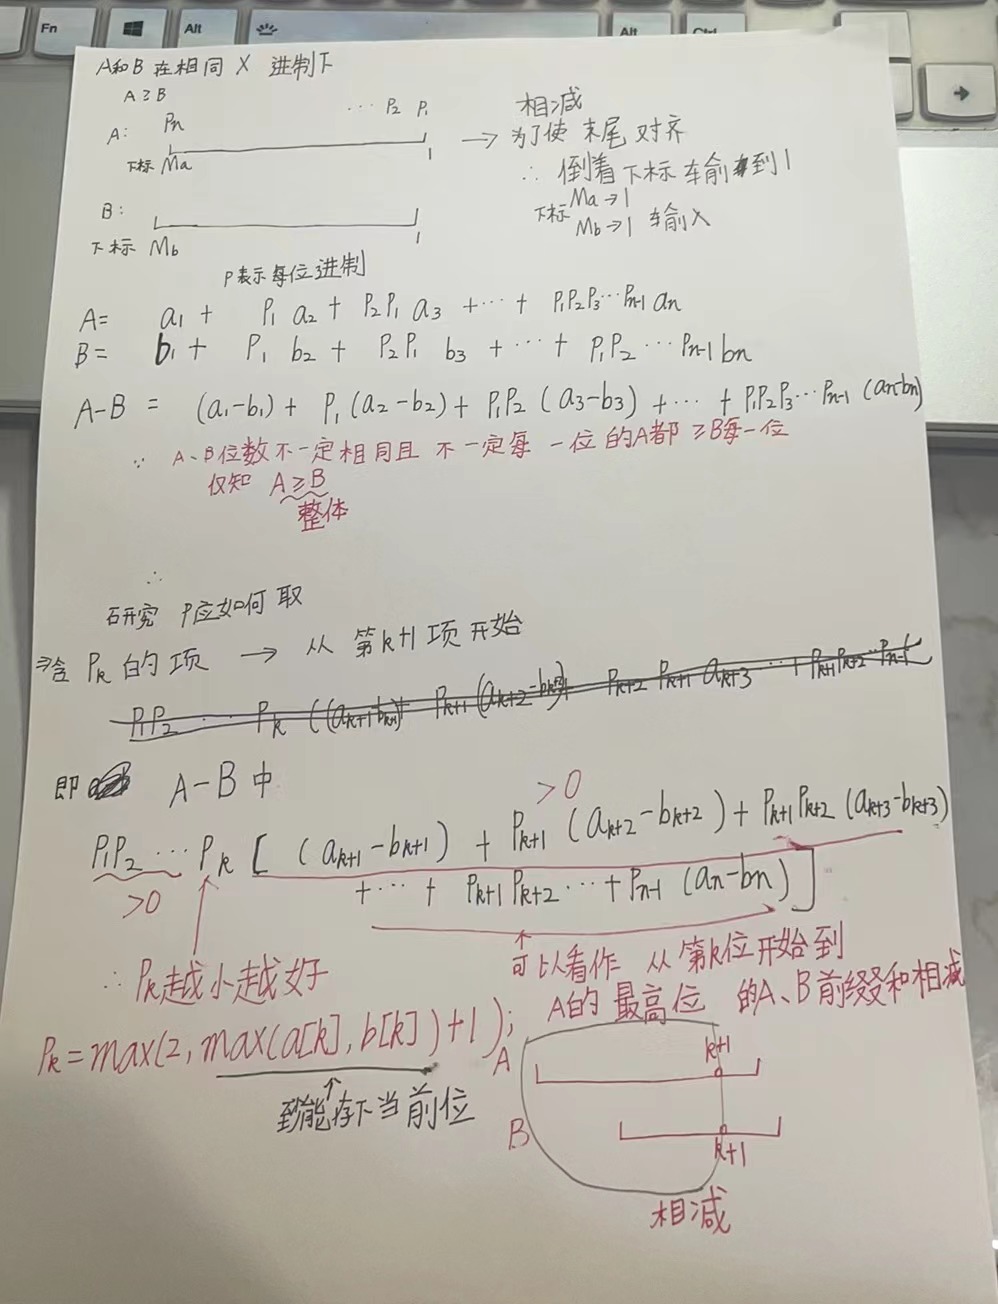 Fn
Alt
Alt
Ctrl
A和B 在相同 X 进制下
A≥B
Pn ··· P2 P1
A:
下标 Ma 1
B:
下标 Mb 1
相减
→ 为了使 末尾 对齐
∴ 倒着 下标 输到1
下标 Ma→1
Mb→1 输入
P表示每位进制
A= a1 + P1 a2 + P2P1 a3 +···+ P1P2P3···Pn-1 an
B= b1 + P1 b2 + P2P1 b3 +···+ P1P2···Pn-1 bn
A-B = (a1-b1) + P1(a2-b2) + P1P2(a3-b3) +···+ P1P2P3···Pn-1 (an-bn)
∵ A、B位数不一定相同且 不一定每一位的A都≥B每一位
仅知 A≥B
整体
∴
研究 P应如何取
含 Pk 的项 → 从 第k+1项开始
P1P2 ··· Pk ((ak+1-bk+1)+ Pk+1(ak+2-bk+2)+ Pk+2 Pk+1 ak+3 ··· + Pk+1Pk+2···Pn-1
即 A-B中
>0
P1P2 ··· Pk [ (ak+1-bk+1) + Pk+1 (ak+2-bk+2) + Pk+1Pk+2 (ak+3-bk+3)
+ ··· + Pk+1 Pk+2 ··· + Pn-1 (an-bn) ]
>0
可以看作 从 第k位开始到
∴ Pk越小越好
A的 最高位 的A、B前缀和相减
Pk = max(2, max(a[k], b[k])+1);
到能存下当前位
A k+1
B k+1
相减